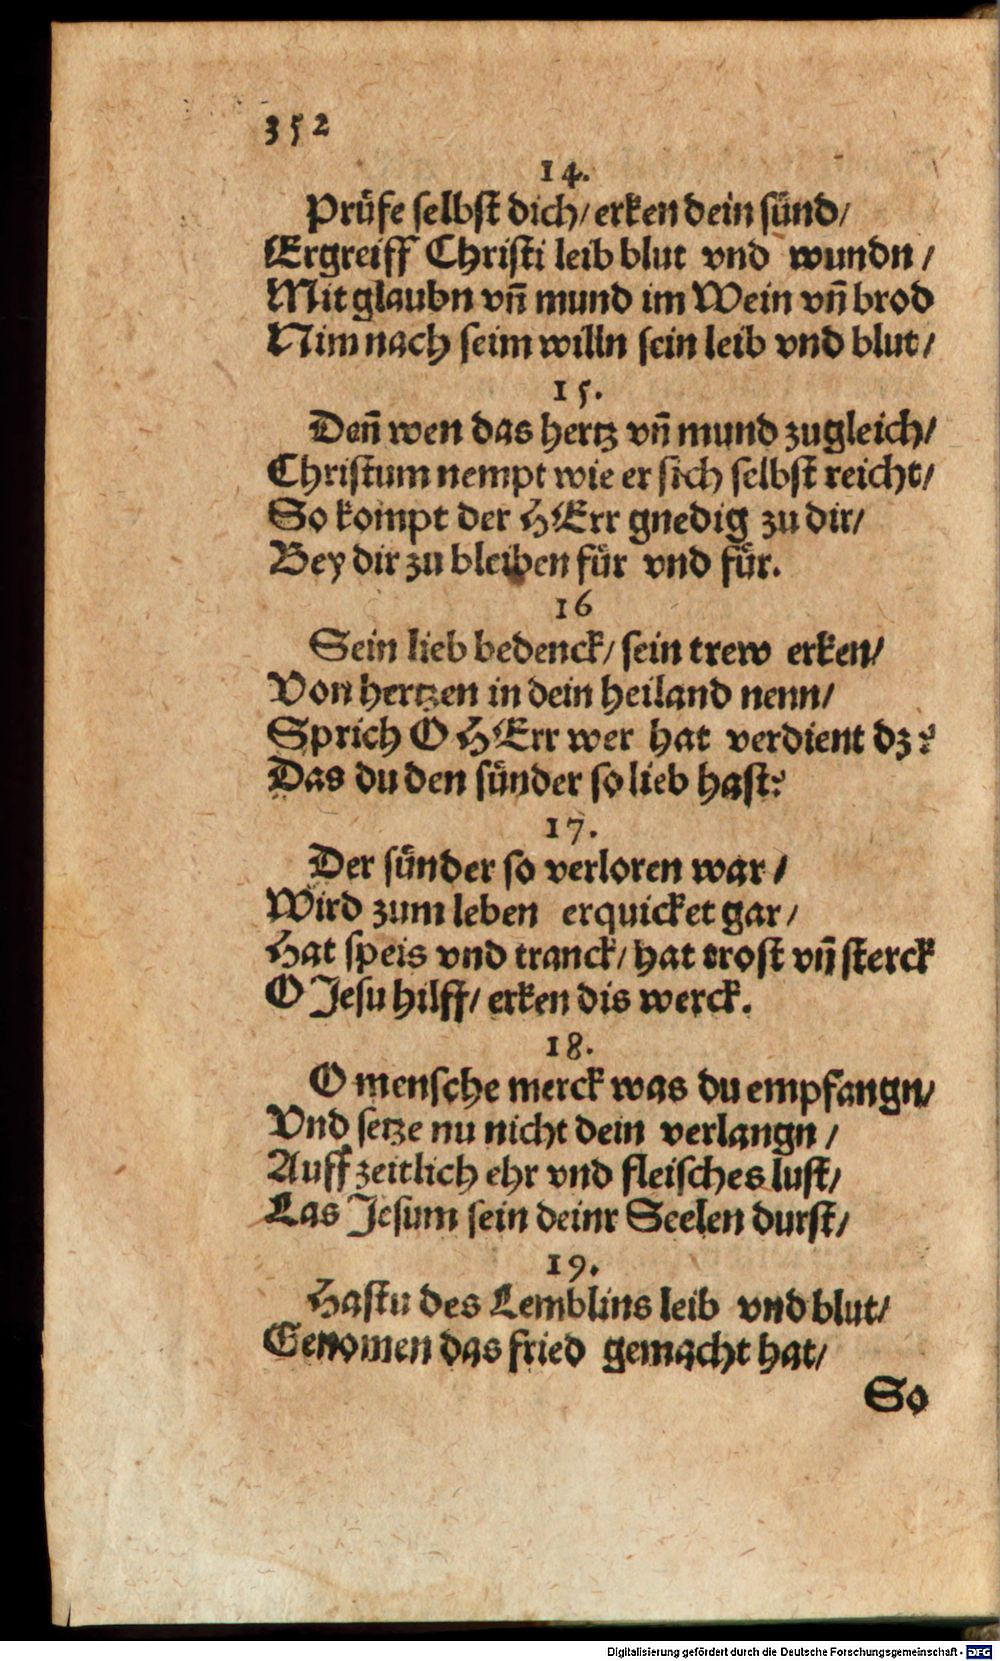 352
14.
Pruͤfe selbst dich/ erken dein suͤnd/
Ergreiff Christi leib blut vnd wundn/
Mit glaubn vñ mund im Wein vñ brod
Nim nach seim willn sein leib vnd blut/
15.
Deñ wen das hertz vñ mund zugleich/
Christum nempt wie er sich selbst reicht/
So kompt der HErr gnedig zu dir/
Bey dir zu bleiben fuͤr vnd fuͤr.
16
Sein lieb bedenck/ sein trew erken/
Von hertzen in dein heiland nenn/
Sprich O HErr wer hat verdient dz?
Das du den suͤnder so lieb hast?
17.
Der suͤnder so verloren war/
Wird zum leben erquicket gar/
Hat speis vnd tranck/ hat trost vñ sterck
O Jesu hilff/ erken dis werck.
18.
O mensche merck was du empfangn/
Vnd setze nu nicht dein verlangn/
Auff zeitlich ehr vnd fleisches lust/
Las Jesum sein deinr Seelen durst/
19.
Hastu des Lemblins leib vnd blut/
Genomen das fried gemacht hat/
So
Digitalisierung gefördert durch die Deutsche Forschungsgemeinschaft - DFG